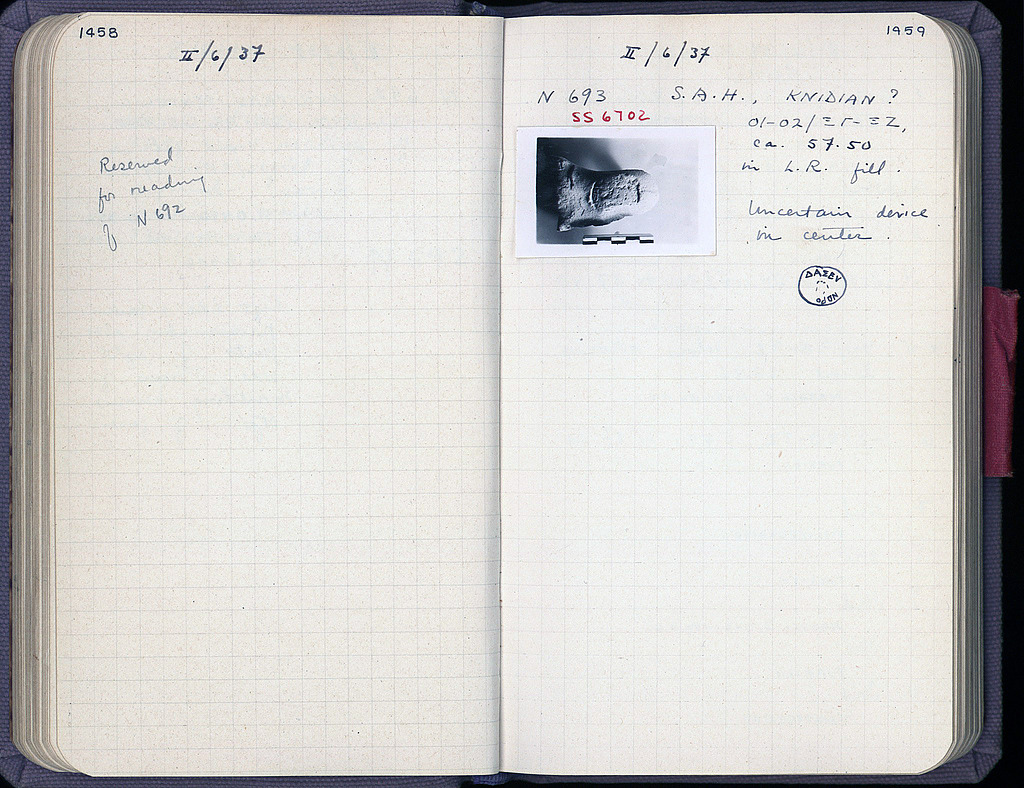 1458
II/6/37
Reserved
for reading
of N 692
1459
II/6/37
N 693 S.A.H., KNIDIAN?
SS 6702
01-02/ΞΓ-ΞΖ,
ca. 57.50
in L.R. fill.
Uncertain device
in center.
ΔΑΣΕΥ